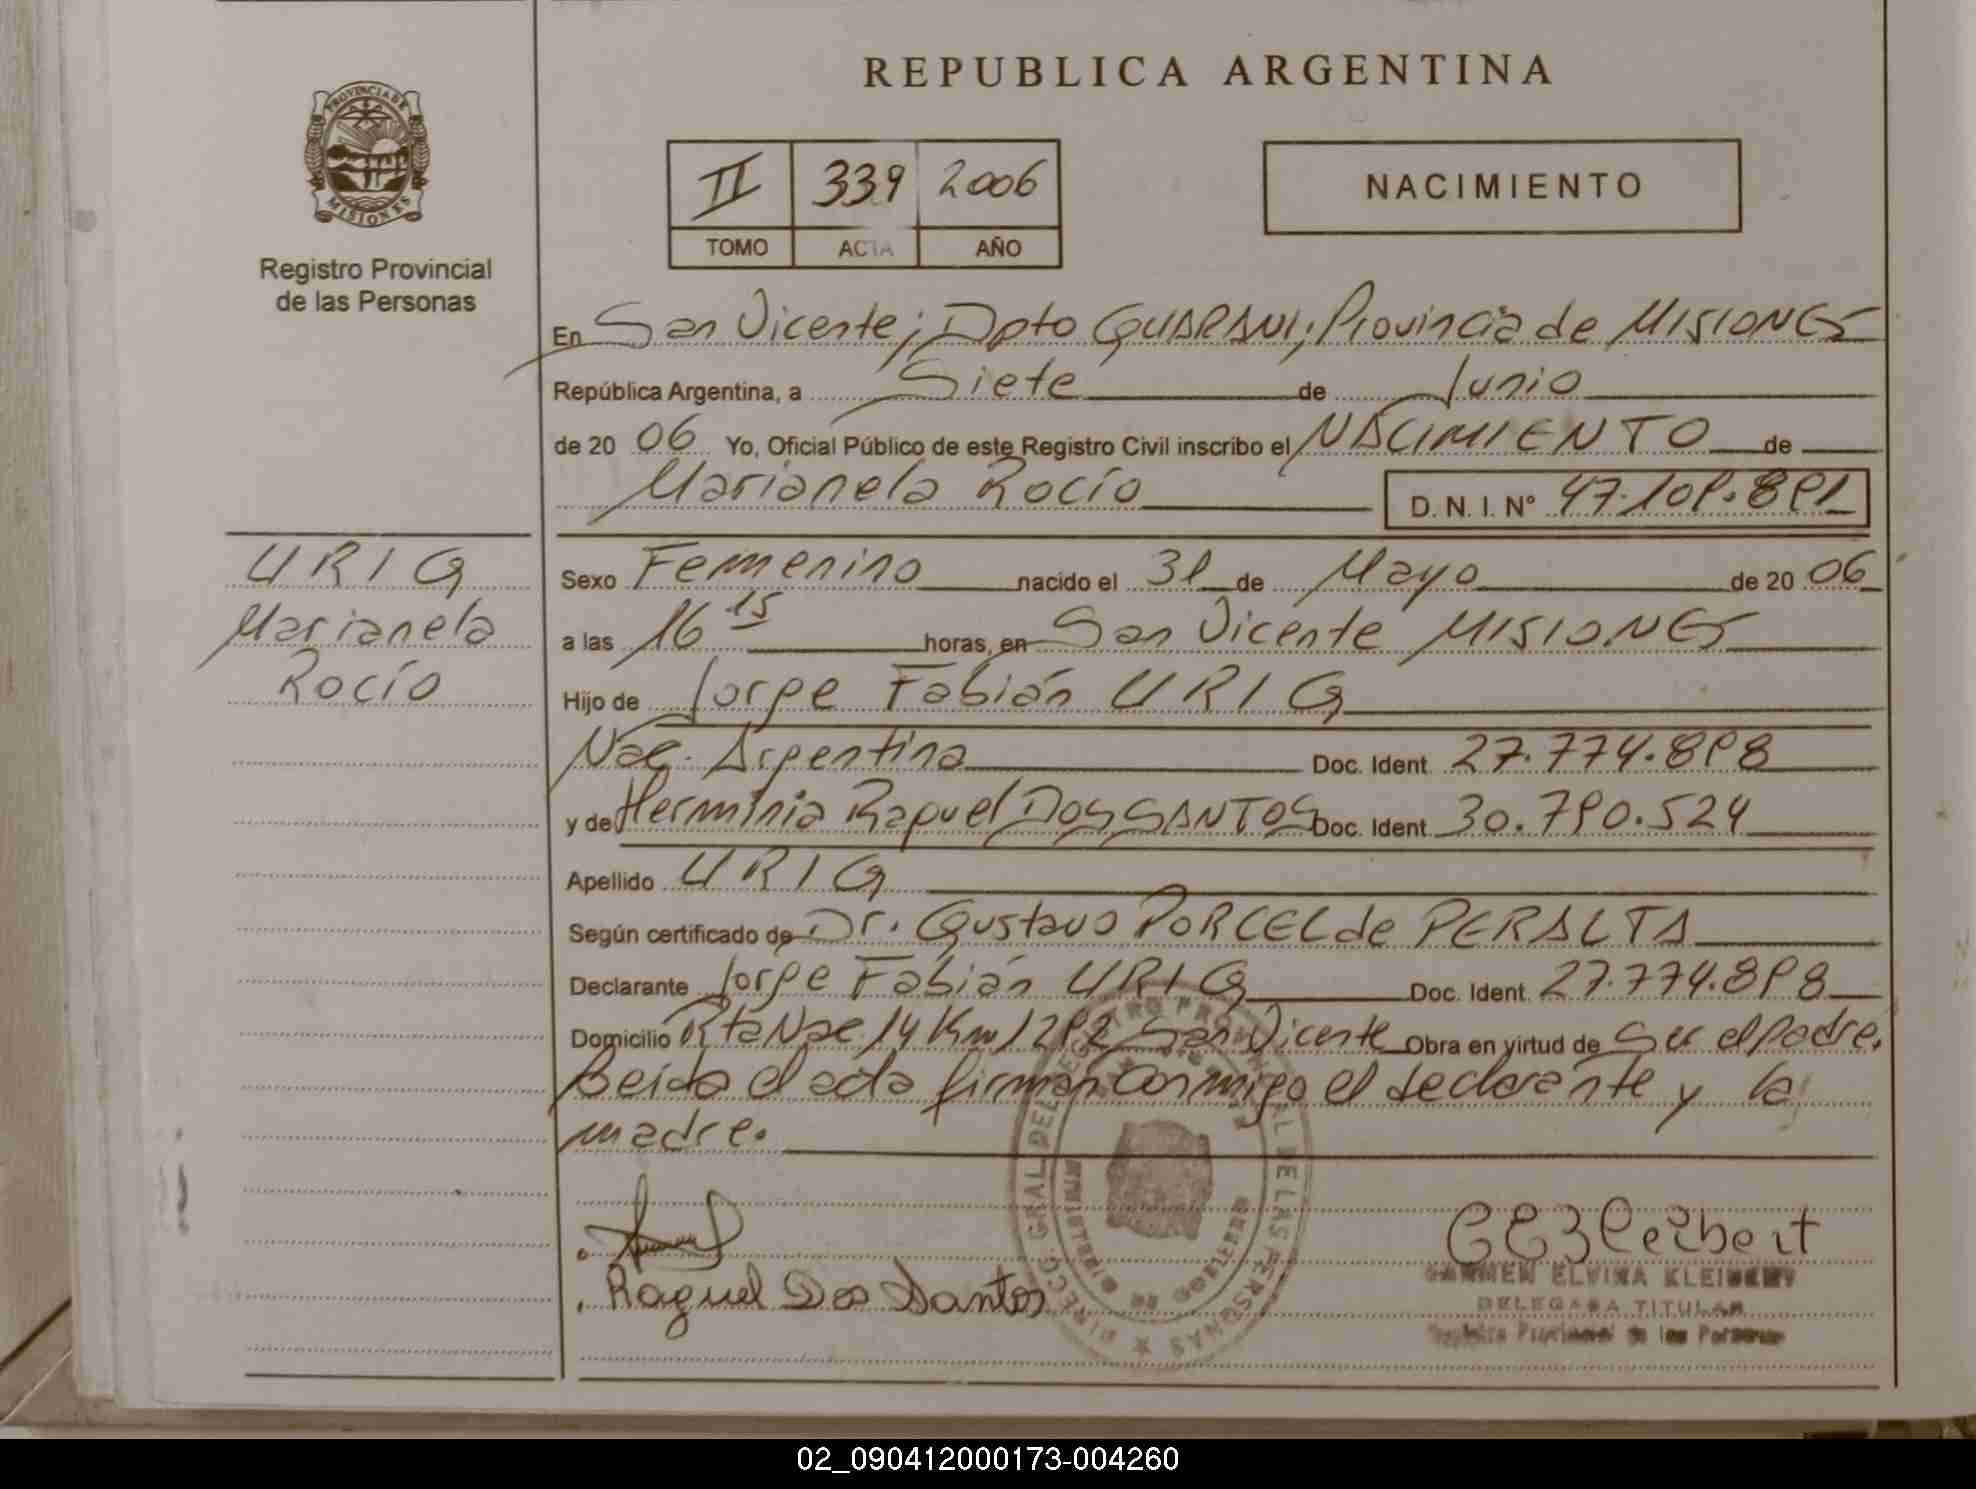 REPUBLICA ARGENTINA
PROVINCIA DE
MISIONES
Registro Provincial
de las Personas
II 339 2006
TOMO ACTA AÑO
NACIMIENTO
En San Vicente; Dpto GUARANI; Provincia de MISIONES
República Argentina, a Siete de Junio
de 20 06 Yo, Oficial Público de este Registro Civil inscribo el NACIMIENTO de
Marianela Rocío D. N. I. Nº 47.109.891
URIG
Marianela
Rocío
Sexo Femenino nacido el 31 de Mayo de 20 06
a las 16 15 horas, en San Vicente MISIONES
Hijo de Jorge Fabián URIG
Nac. Argentina Doc. Ident 27.774.898
y de Herminia Raquel DOS SANTOS Doc. Ident 30.790.524
Apellido URIG
Según certificado de Dr. Gustavo PORCEL de PERALTA
Declarante Jorge Fabián URIG Doc. Ident. 27.774.898
Domicilio Rta Nac 14 Km 1292 San Vicente Obra en virtud de ser el padre.
Leida el acta firman conmigo el declarante y la
madre.
Raquel Dos Santos
CEKleibert
CARMEN ELVIRA KLEIBERT
DELEGADA TITULAR
Registro Provincial de las Personas
02_090412000173-004260